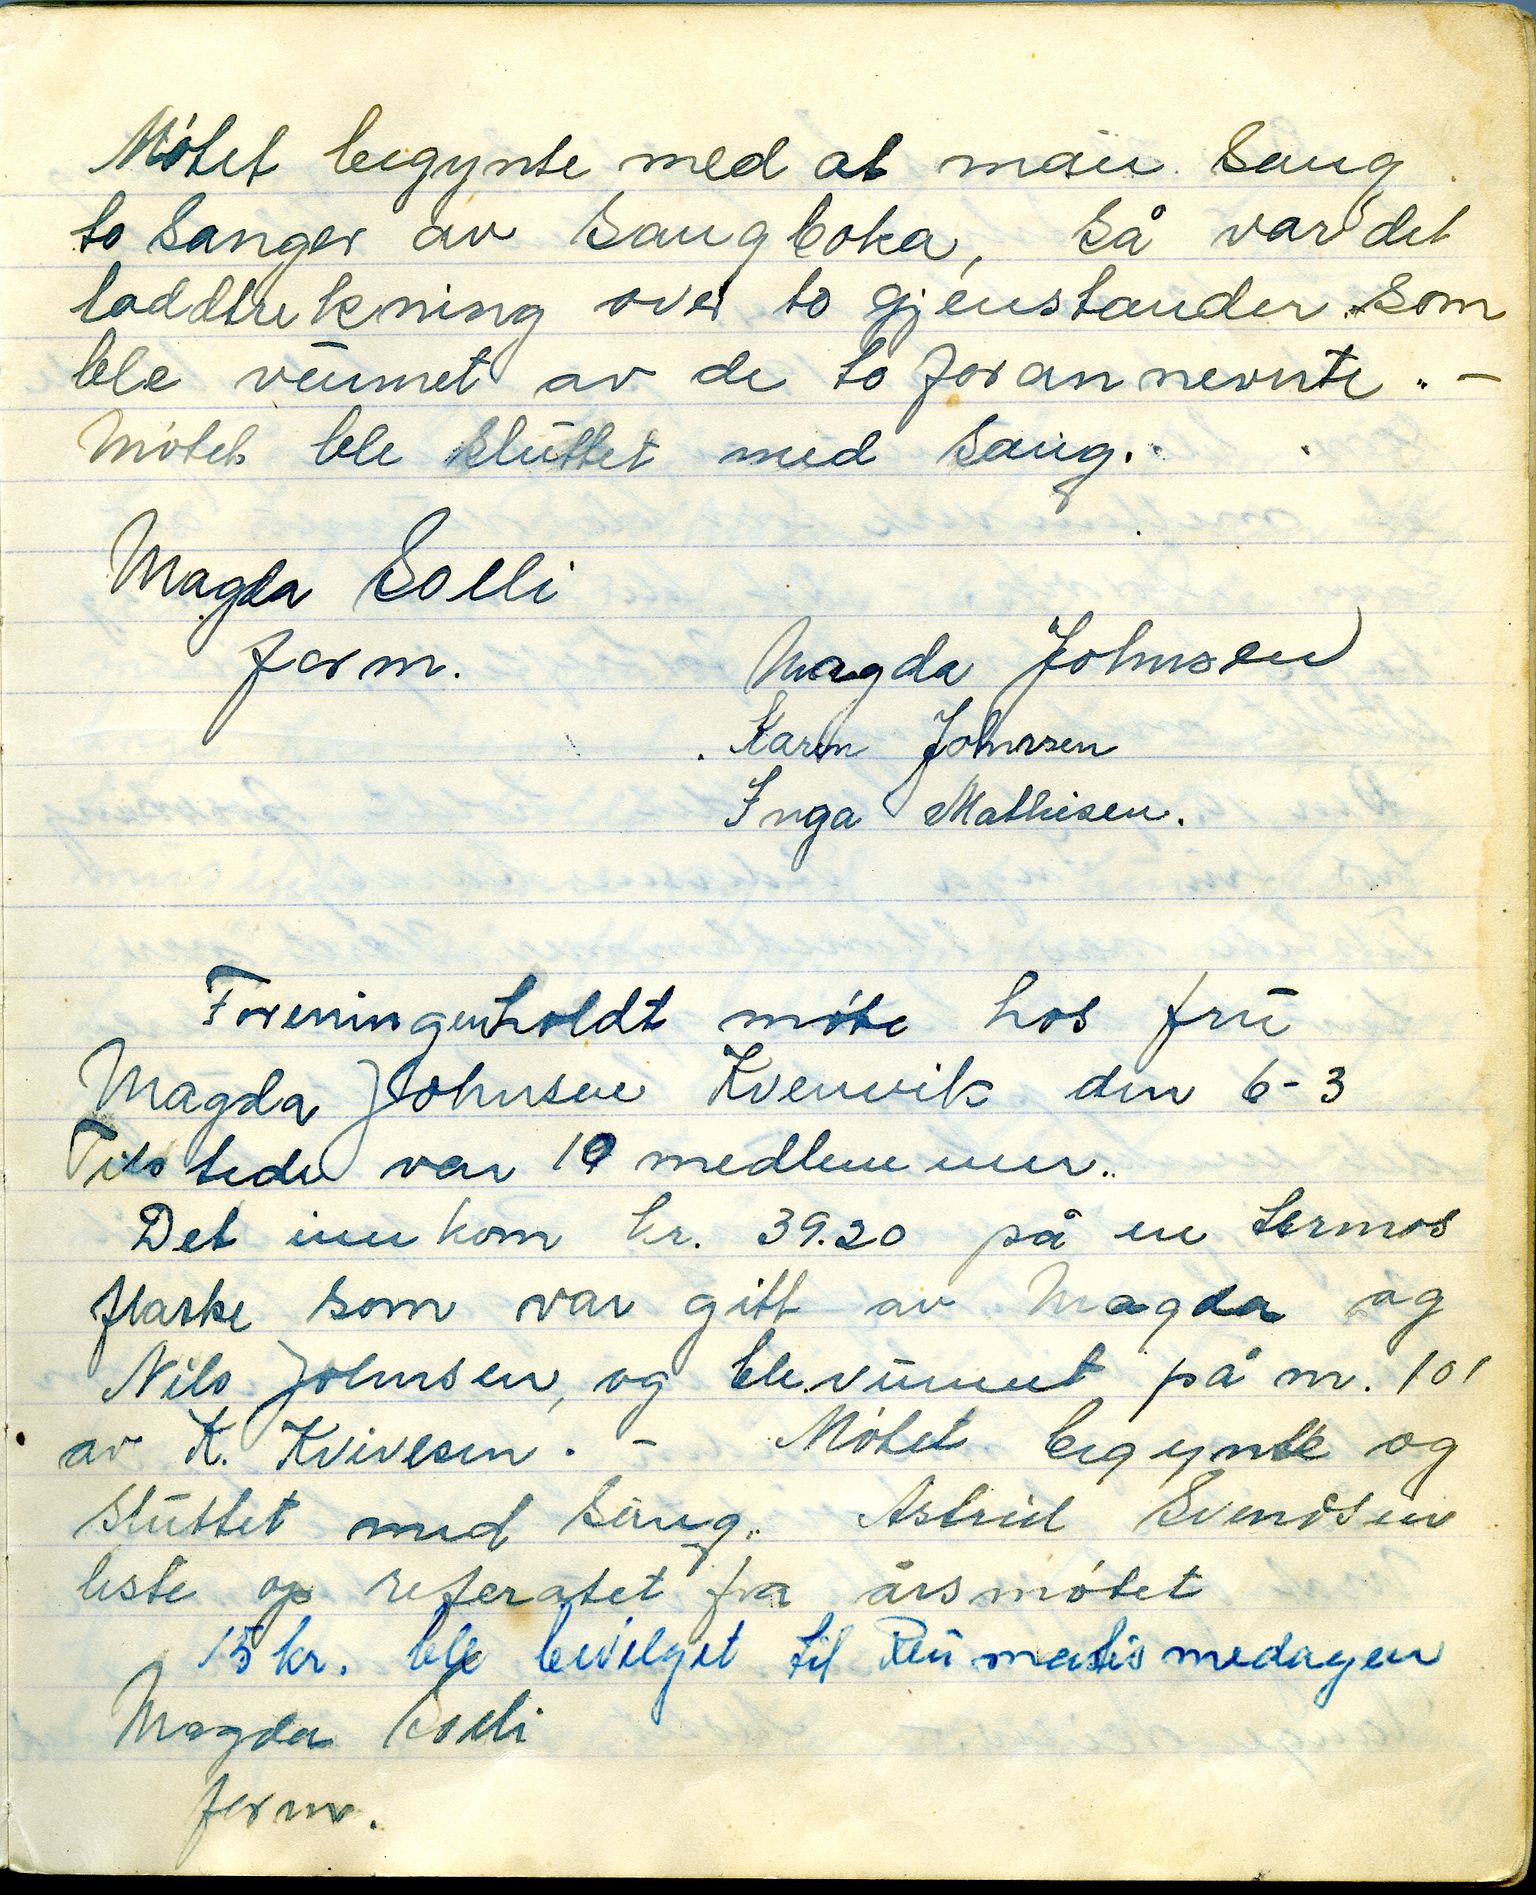 Møtet begynte med at man sang
to sanger av sangboka, så var det
loddtrekning over to gjenstander som
ble vunnet av de to forannevnte. -
Møtet ble sluttet med sang.
Magda Solli
form.
Magda Johnsen
Karen Johnsen
Inga Mathisen.
Foreningen holdt møte hos fru
Magda Johnsen Kvenvik den 6-3
Tilstede var 19 medlemmer.
Det innkom kr. 39.20 på en termos
flaske som var gitt av Magda og
Nils Johnsen, og ble vunnet på nr. 101
av K. Kvivesen. - Møtet begynte og
sluttet med sang. Astrid Svendsen
leste op referatet fra årsmøtet
15 kr. ble bevilget til Reumatismedagen
Magda Solli
form.